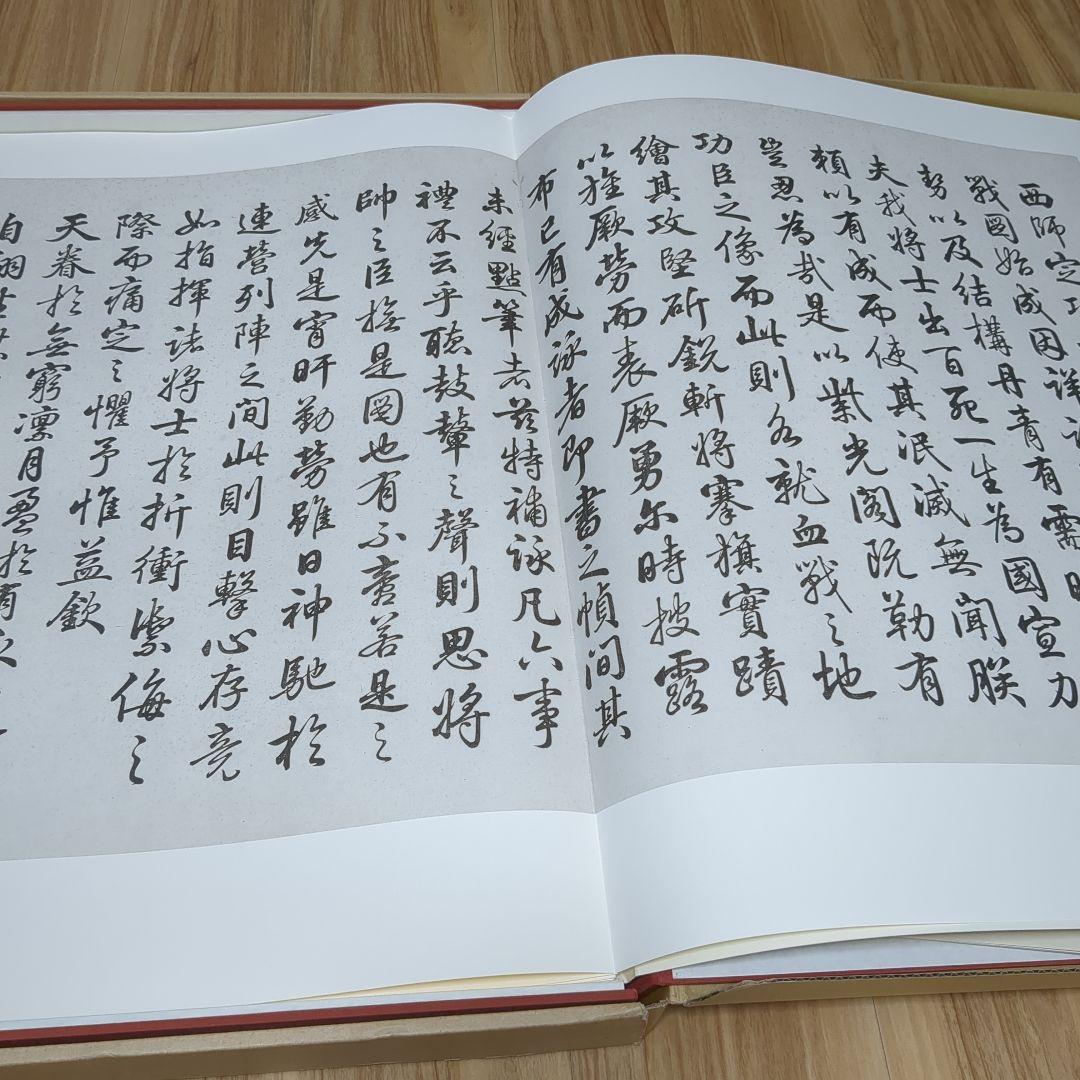 西師定功
戰圖始成因詳
勢以及結構丹青有需時
夫我將士出百死一生為國宣力
賴以有成而使其泯滅無聞朕
豈忍為哉是以紫光閣既勒有
功臣之像而此則各就血戰之地
繪其攻堅斫銳斬將搴旗實蹟
以旌厥勞而表厥勇尔時披露
布已有成詠者即書之幀間其
未經點筆者茲特補詠凡六事
禮不云乎聽鼓鼙之聲則思將
帥之臣撫是圖也有不啻若是之
感先是宵旰勤勞雖日神馳於
連營列陣之間此則目擊心存竟
如指揮諸將士於折衝禦侮之
際而痛定之懼予惟益欽
天眷於無窮凜月盈於有永